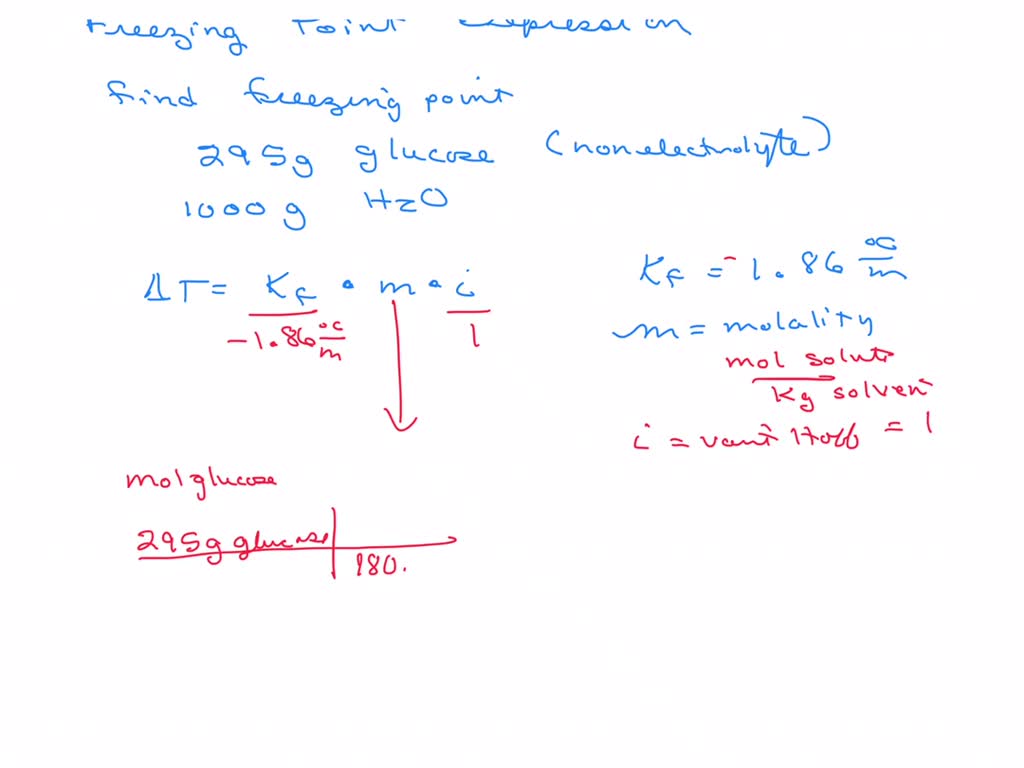 Freezing Point Depression
Find freezing point
295g glucose (nonelectrolyte)
1000 g H2O
ΔT = Kf • m • i
-1.86 °C/m
1
Kf = -1.86 °C/m
m = molality
mol solute
Kg solvent
i = vant Hoff = 1
mol glucose
295g glucose
180.